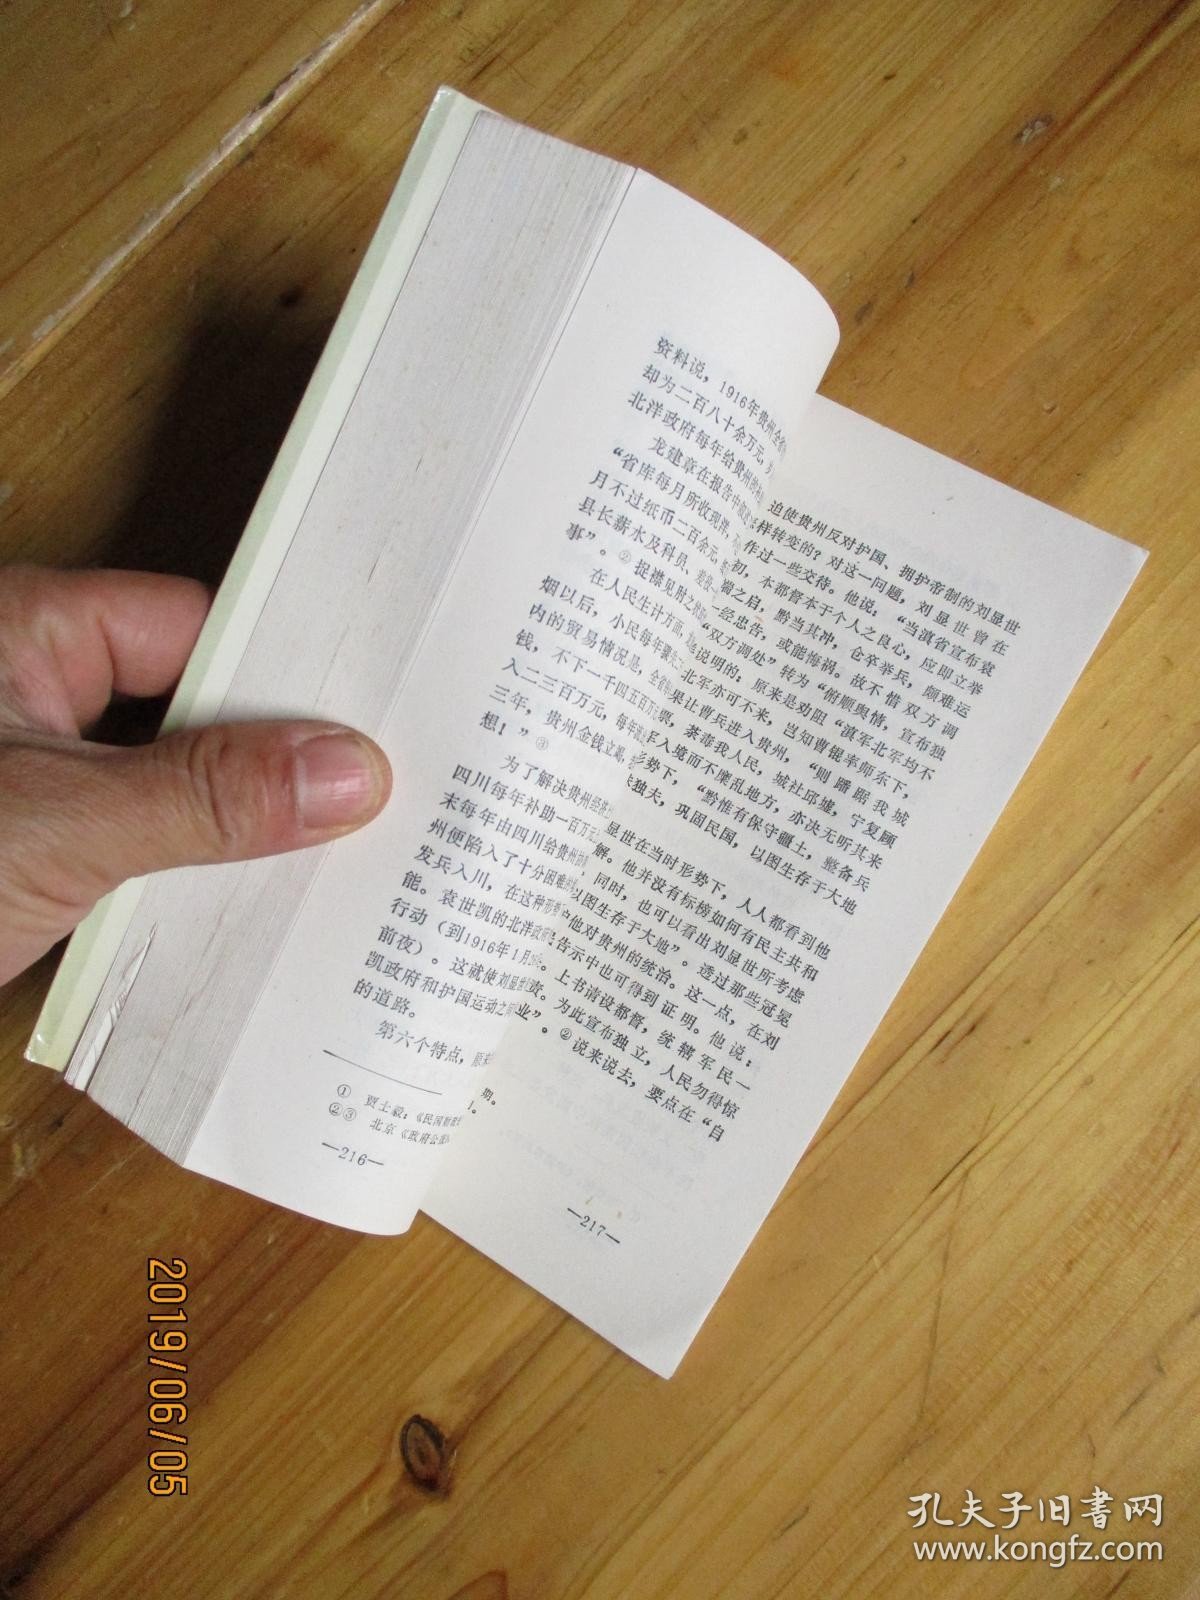 资料说，1916年贵州全省
却为二百八十余万元，
北洋政府每年给贵州的
龙建章在报告中
“省库每月所收现洋，
月不过纸币二百余元，
县长薪水及科员、差役
事”。②捉襟见肘之
在人民生计方面，
烟以后，小民每年
内的贸易情况是，全省
钱，不下一千四五百万元
入二三百万元，每年
三年，贵州金钱立竭，
想！”③
为了解决贵州经济
四川每年补助一百万元
末每年由四川给贵州
州便陷入了十分困难
发兵入川，在这种形势
能。袁世凯的北洋政府
行动（到1916年1月
前夜）。这就使刘显世
凯政府和护国运动之间
的道路。
第六个特点，
① 贾士毅：《民国财政
②③ 北京《政府公报》
—216—
迫使贵州反对护国、拥护帝制的刘显世
样转变的？对这一问题，刘显世曾在
作过一些交待。他说：“当滇省宣布袁
初，本都督本于个人之良心，应即立举
端之启，黔当其冲，仓卒举兵，颇难运
经忠告，或能悔祸。故不惜双方调
“双方调处”转为“俯顺舆情，宣布独
说明的：原来是劝阻“滇军北军均不
北军亦可不来，岂知曹锟率师东下，
果让曹兵进入贵州，“则蹯踞我城
票，荼毒我人民，城社邱墟，宁复顾
军入境而不糜乱地方，亦决无听其来
形势下，“黔惟有保守疆土，整备兵
独夫，巩固民国，以图生存于大地
显世在当时形势下，人人都看到他
解。他并没有标榜如何有民主共和
同时，也可以看出刘显世所考虑
以图生存于大地”。透过那些冠冕
他对贵州的统治。这一点，在刘
告示中也可得到证明。他说：
上书请设都督，统辖军民一
责。为此宣布独立，人民勿得惊
业”。②说来说去，要点在“自
期。
—217—
2019/06/05
孔夫子旧书网
www.kongfz.com